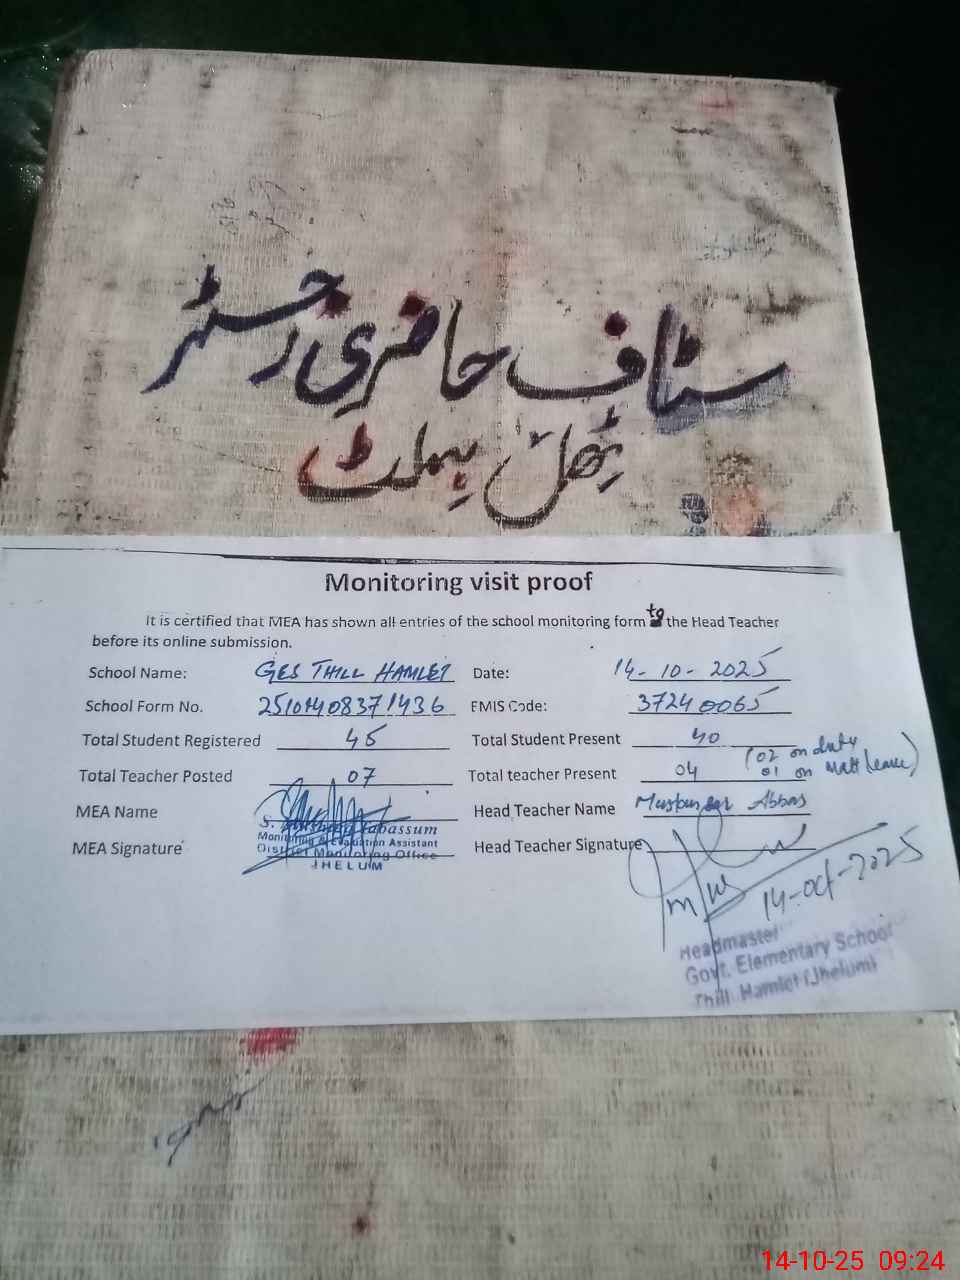 سٹاف حاضری رجسٹر
ٹھل ہملٹ
Monitoring visit proof
It is certified that MEA has shown all entries of the school monitoring form to the Head Teacher
before its online submission.
School Name: GES THILL HAMLET Date: 14-10-2025
School Form No. 25101408371436 EMIS Code: 37240065
Total Student Registered 45 Total Student Present 40
Total Teacher Posted 07 Total teacher Present 04 (02 on duty
01 on Matt leave)
MEA Name Head Teacher Name Abbas
S. Tabassum
Monitoring & Evaluation Assistant
MEA Signature District Monitoring Office Head Teacher Signature
JHELUM
14-oct-2025
Headmaster
Govt. Elementary School
Thill Hamlet (Jhelum)
14-10-25 09:24